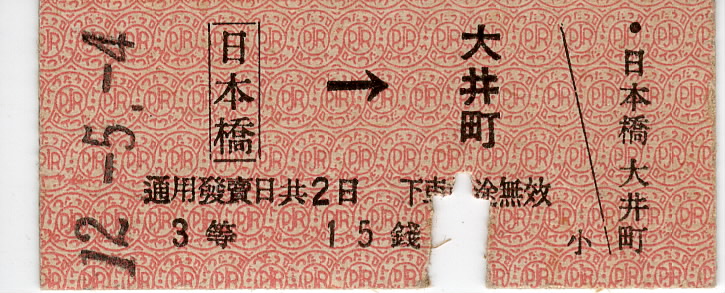 12.-5.-4
日本橋
→
大井町
通用發賣日共2日 下車 途無效
3等 15錢
小
・日本橋 大井町